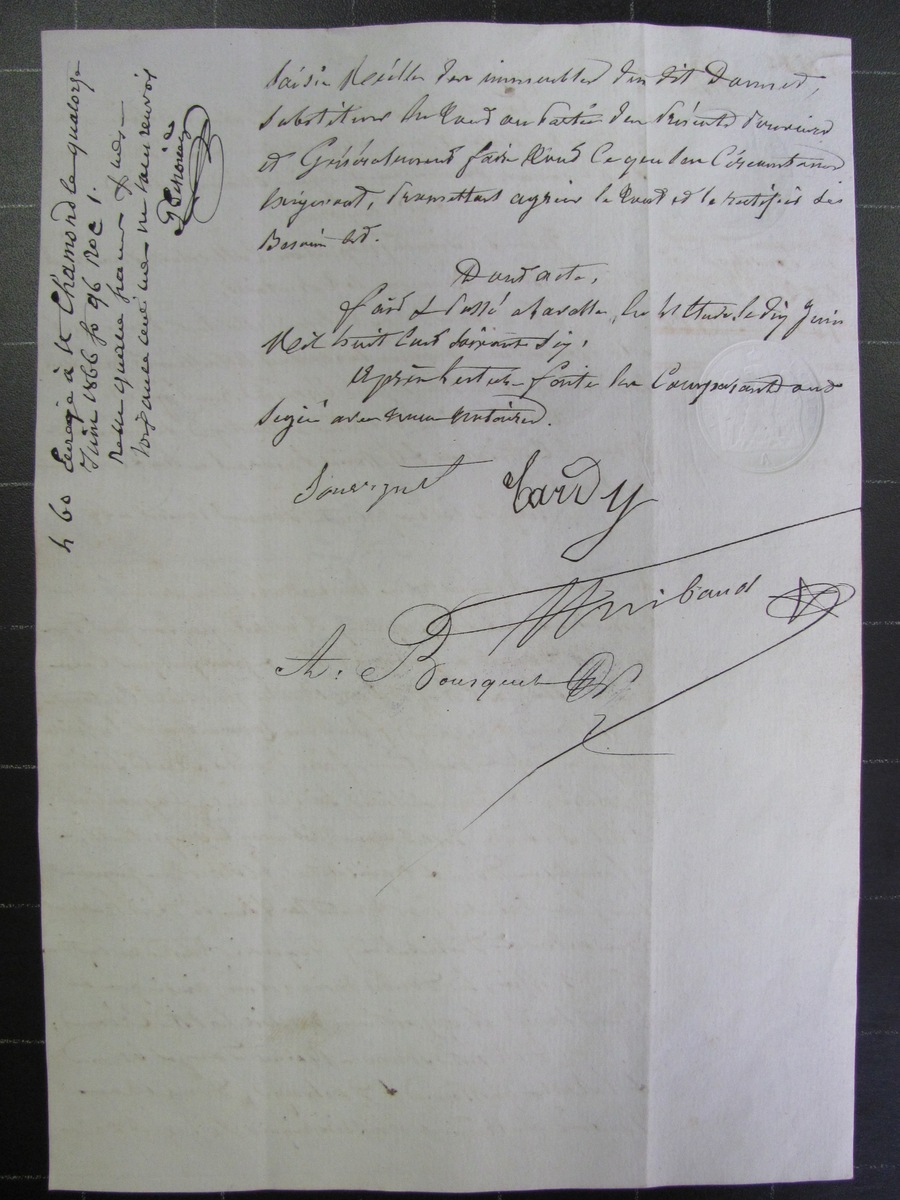 saisie Réelle des immeubles du dit Damed,
substituer en tout ou partie des présents pouvoirs
et Généralement faire tout ce que les Circonstances
exigeront, promettant agréer le tout et le ratifier si
Besoin est.
Dont acte,
fait & passé a en l'étude, le dix Juin
Mil huit Cent soixante Six,
et après lecture faite les Comparants ont
signé avec nous notaires.
Tardy
Thibaud
A. Bousquet
Enregé à St Chamond le quatorze
Juin 1866 fo 96 Ro C 1.
Reçu quatre francs &
soixante centimes sans renvois
4 60